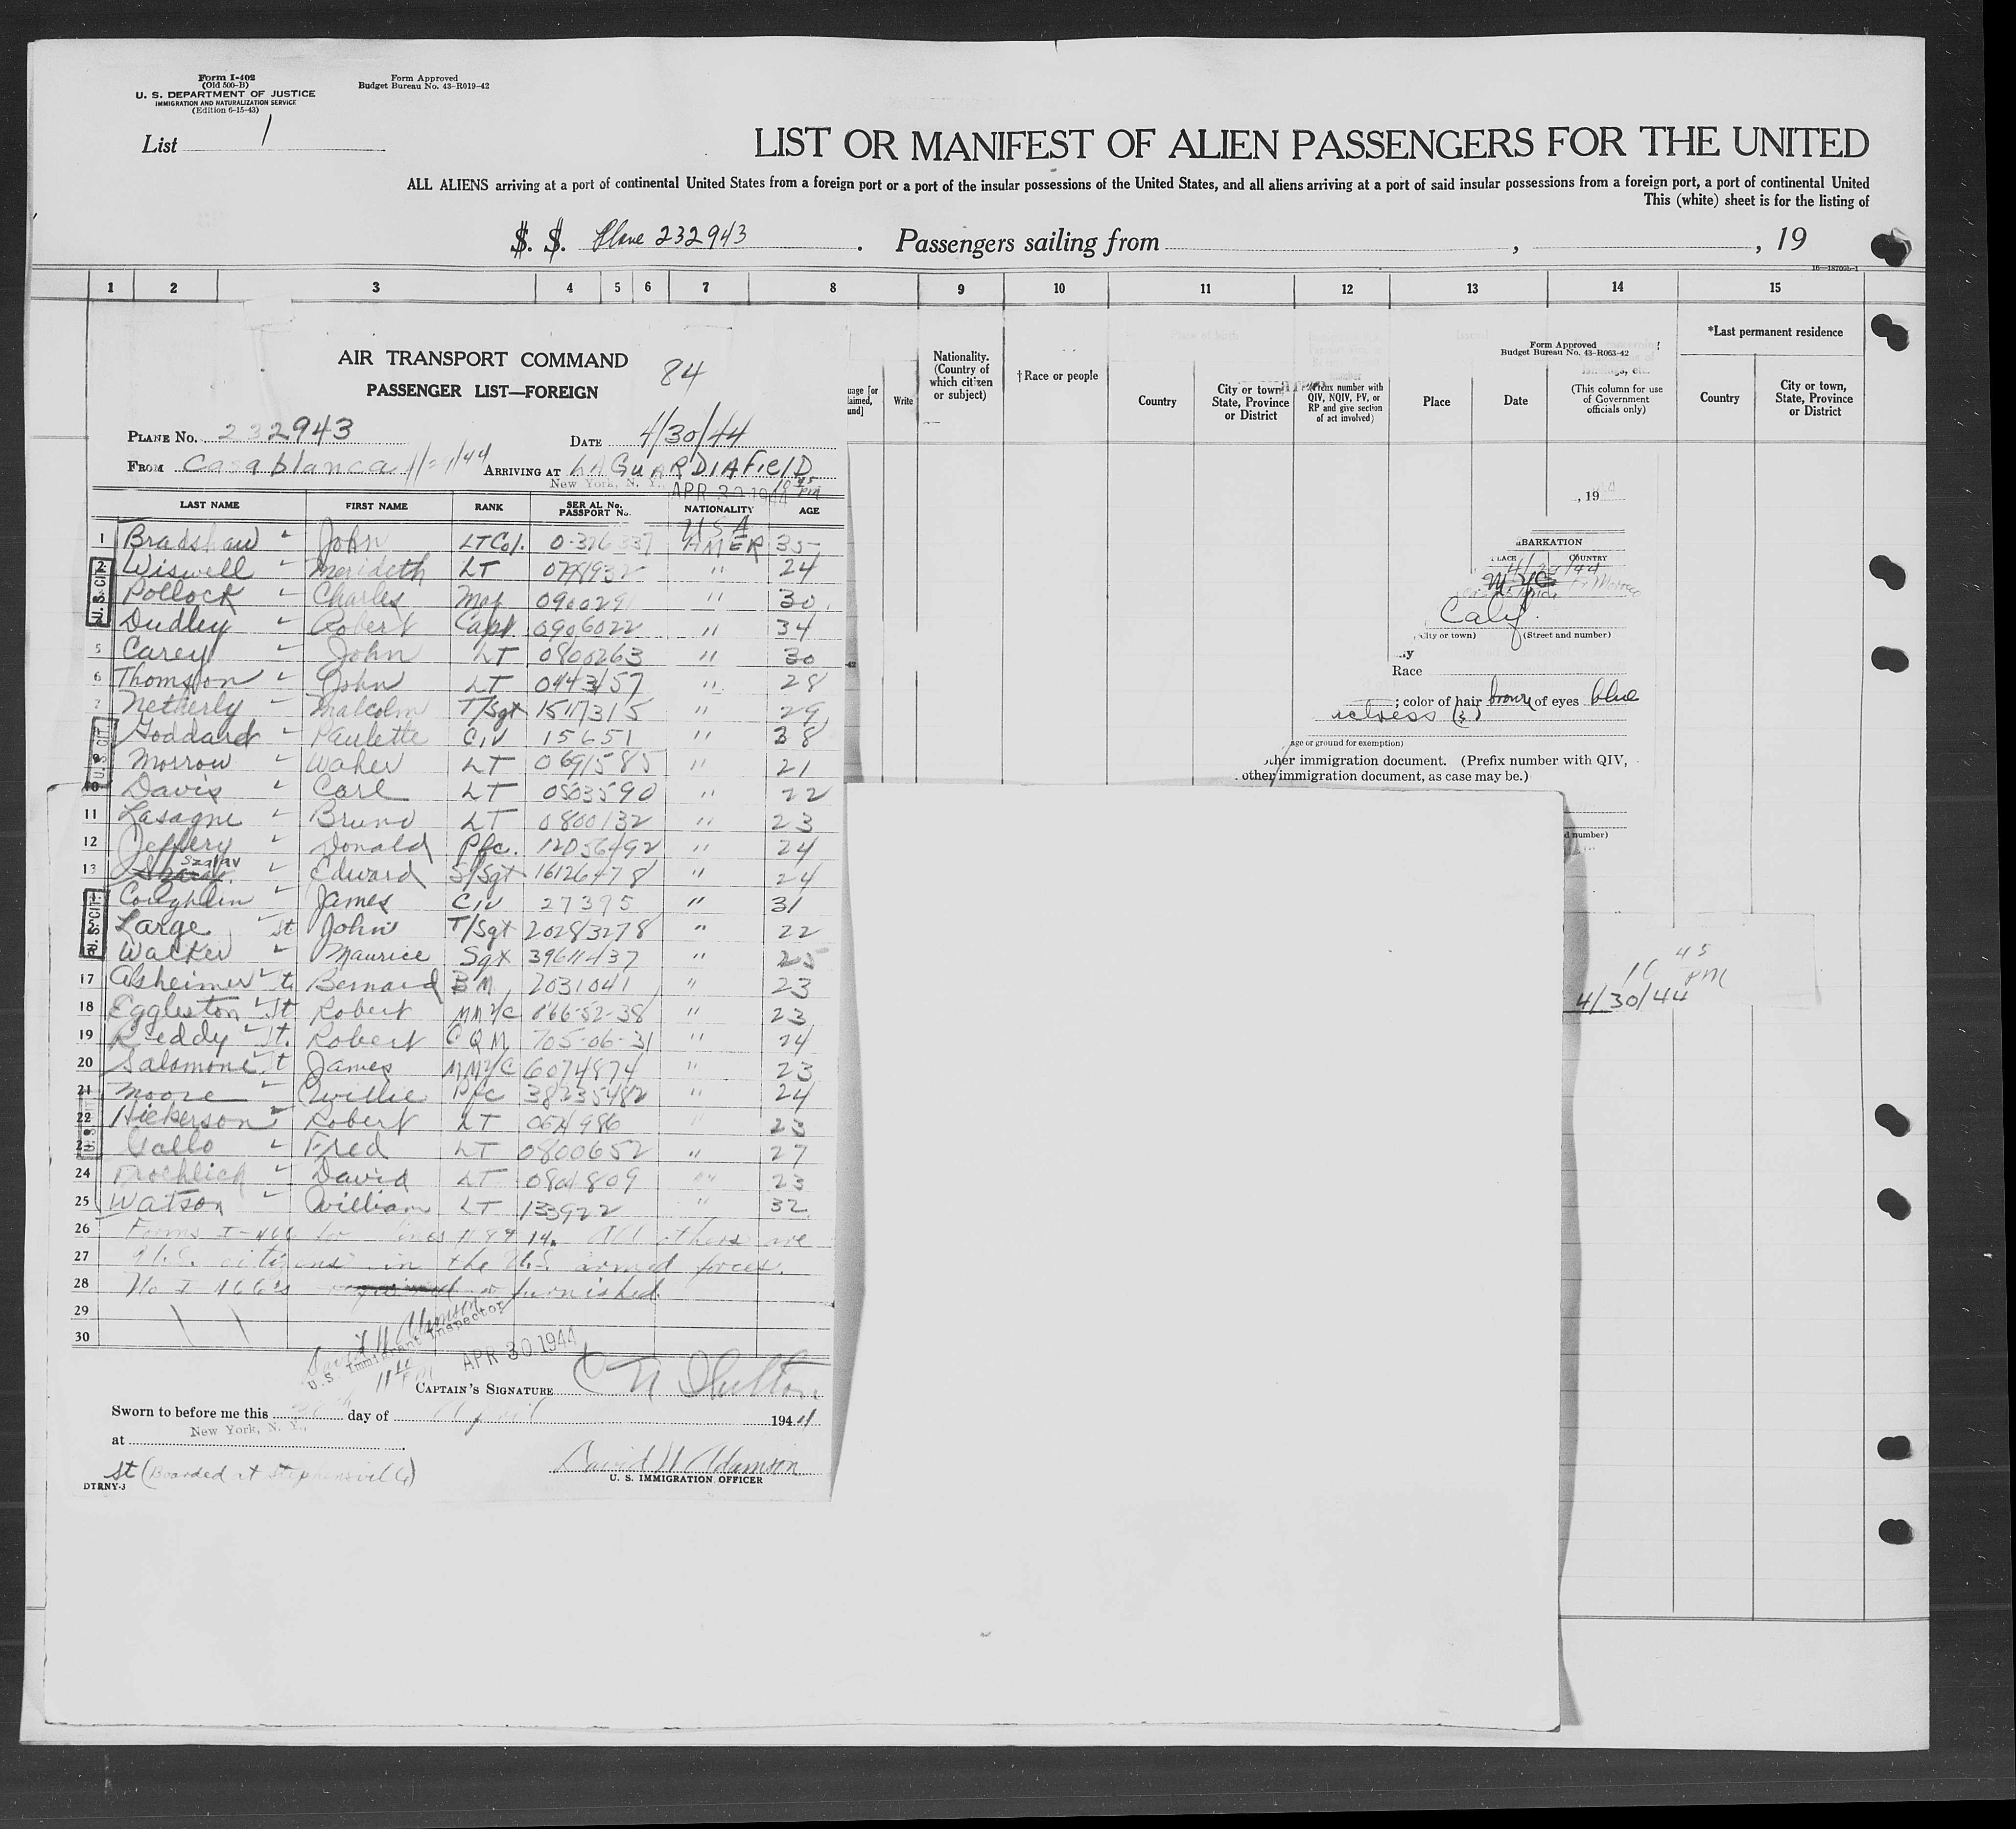 Form I-402
(Old 500-B)
U. S. DEPARTMENT OF JUSTICE
IMMIGRATION AND NATURALIZATION SERVICE
(Edition 6-15-43)
Form Approved
Budget Bureau No. 43-R019-42
List 1
LIST OR MANIFEST OF ALIEN PASSENGERS FOR THE UNITED
ALL ALIENS arriving at a port of continental United States from a foreign port or a port of the insular possessions of the United States, and all aliens arriving at a port of said insular possessions from a foreign port, a port of continental United
This (white) sheet is for the listing of
S. S. Plane 232943. Passengers sailing from , , 19
16—18700b-1
1 2 3 4 5 6 7 8 9 10 11 12 13 14 15
AIR TRANSPORT COMMAND
PASSENGER LIST—FOREIGN
84
PLANE No. 232943 DATE 4/30/44
FROM Casablanca ARRIVING AT LAGUARDIA FIELD
New York, N. Y., APR 30 1944 10 45 PM
LAST NAME FIRST NAME RANK SERIAL No. PASSPORT No. NATIONALITY AGE
USA
1 Bradshaw John LT Col. 0-326337 AMER 35
2 Wiswell Merideth LT " 24
Pollock Charles Maj " 30
Dudley Robert Capt 0906022 " 34
5 Carey John LT 0800263 " 30
6 Thomspon John LT 0443157 " 28
7 Netherly Malcolm T/Sgt 15117315 " 29
Goddard Paulette Civ 15651 " 38
Morrow LT 0691585 " 21
10 Davis Carl LT 0803590 " 22
11 Lasagne Bruno LT 0800132 " 23
12 Jeffery Donald Pfc. 12056492 " 24
13 Szalav Edward S/Sgt 16126478 " 24
Coughlin James Civ 27395 " 31
Large St John T/Sgt 20283278 " 22
Walker Maurice Sgt 39611437 " 25
17 Alsheimer St Bernard BM 2031041 " 23
18 Eggleston St Robert MM2/C 866-52-38 " 23
19 Reddy St. Robert CQM 705-06-31 " 24
20 Salomone St James MM2/C 6074874 " 23
21 Moore Willie Pfc 38235482 " 24
22 Hickerson Robert LT " 23
23 Gallo Fred LT 0800652 " 27
24 Froehlich David LT 0801809 " 23
25 Watson William LT 133922 " 32
26 Forms I-466 for lines 8 & 14. All others are
27 U.S. citizens in the U.S. armed forces.
28 No I 466's required or furnished.
29
30
David W Adamson
U. S. Immigrant Inspector
APR 30 1944
CAPTAIN'S SIGNATURE
Sworn to before me this 30th day of April 1944
New York, N. Y.,
at
David W Adamson
U. S. IMMIGRATION OFFICER
St (Boarded at Stephensville)
DTRNY-3
U. S. CIT.
U. S. CIT.
U. S. CIT.
U. S. CIT.
Write
Nationality. (Country of which citizen or subject)
†Race or people
Place of birth
Country
City or town, State, Province or District
(Prefix number with QIV, NQIV, PV, or RP and give section of act involved)
Issued
Place Date
Form Approved
Budget Bureau No. 43-R063-42
(This column for use of Government officials only)
*Last permanent residence
Country
City or town, State, Province or District
, 19
BARKATION
PLACE COUNTRY
Calif.
(City or town) (Street and number)
Race
; color of hair brown of eyes blue
actress
age or ground for exemption)
other immigration document. (Prefix number with QIV,
other immigration document, as case may be.)
d number)
10 45 PM
4/30/44